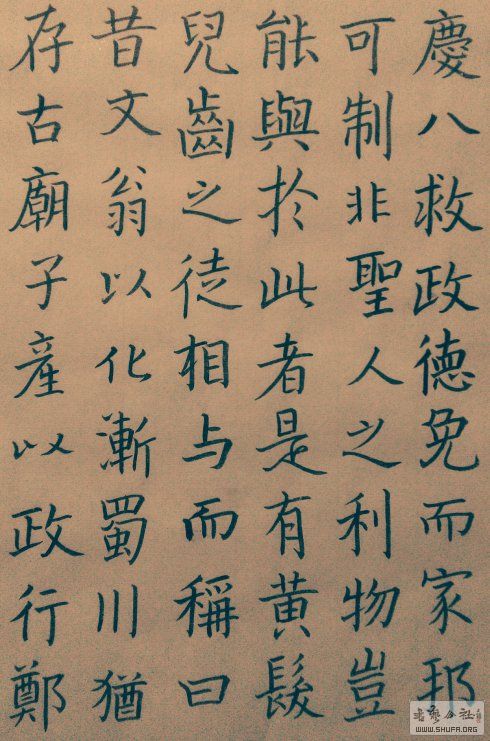 慶八救政德免而家邦
可制非聖人之利物豈
能與於此者是有黃髮
兒齒之徒相与而稱曰
昔文翁以化漸蜀川猶
存古廟子產以政行鄭
书艺公社
WWW.SHUFA.ORG